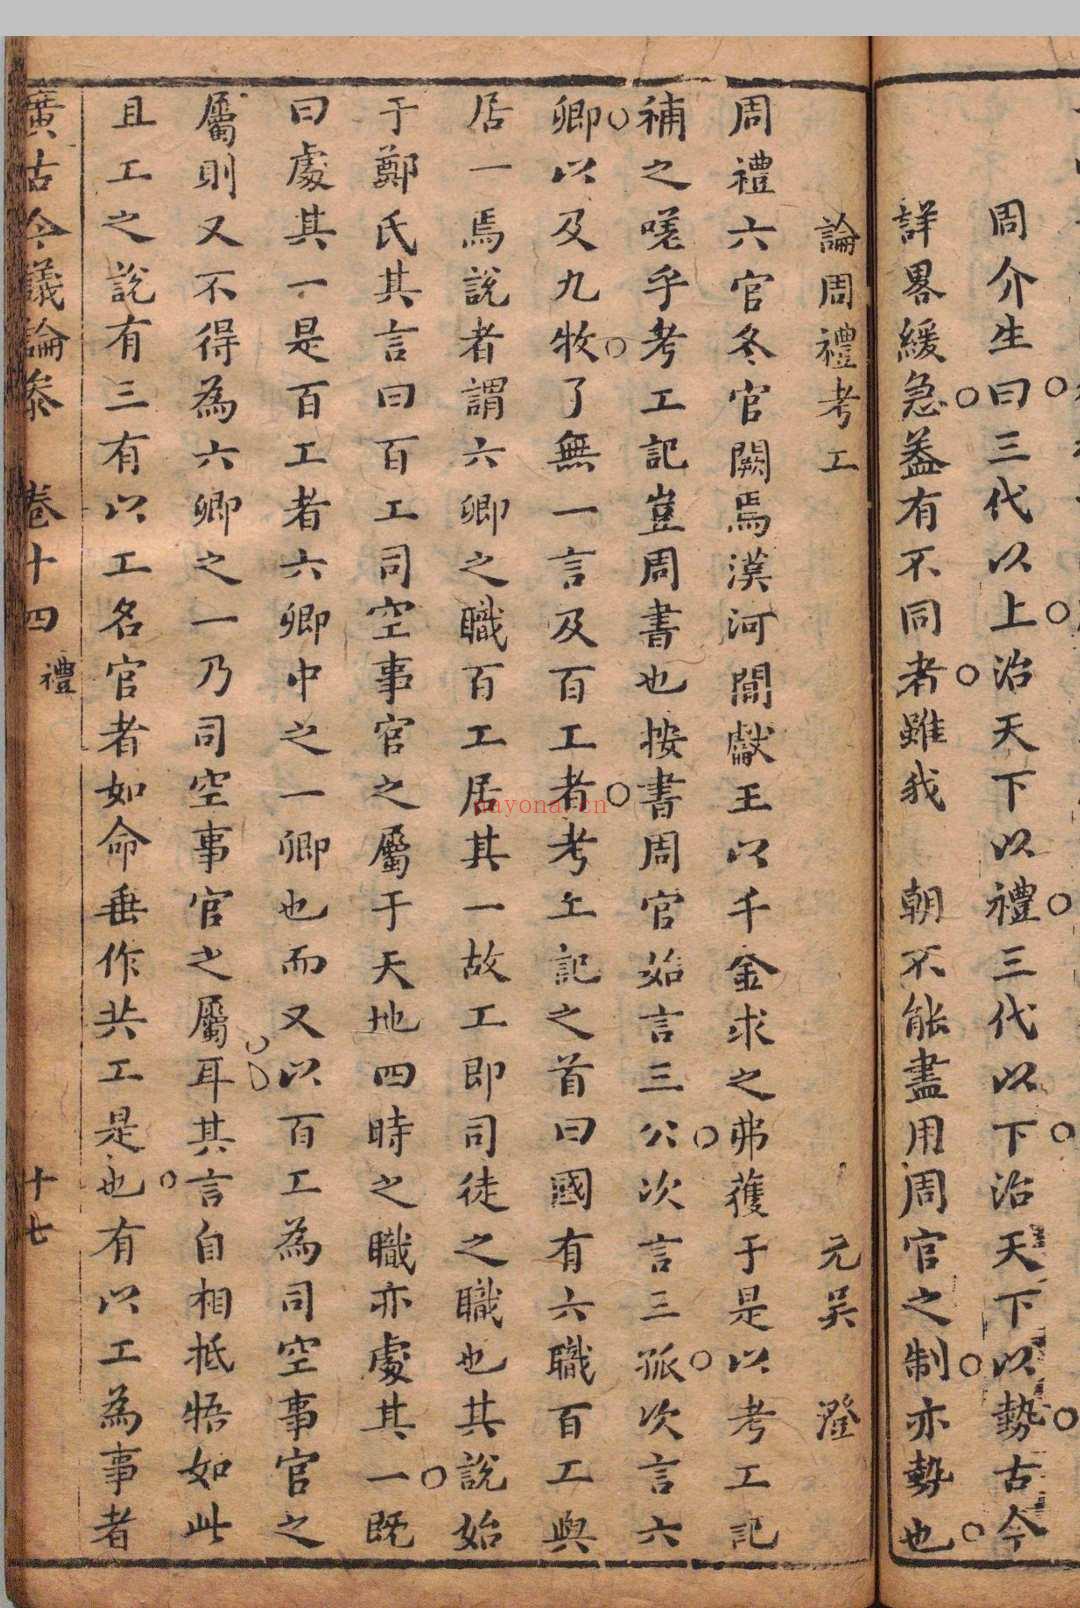 周介生曰三代以上治天下以禮三代以下治天下以勢古今
詳畧緩急蓋有不同者雖我　朝不能盡用周官之制亦勢也
論周禮考工　元吳　澄
周禮六官冬官闕焉漢河間獻王以千金求之弗獲于是以考工記
補之嗟乎考工記豈周書也按書周官始言三公次言三孤次言六
卿以及九牧了無一言及百工者考工記之首曰國有六職百工與
居一焉說者謂六卿之職百工居其一故工即司徒之職也其說始
于鄭氏其言曰百工司空事官之屬于天地四時之職亦處其一既
曰處其一是百工者六卿中之一卿也而又以百工為司空事官之
屬則又不得為六卿之一乃司空事官之屬耳其言自相抵牾如此
且工之說有三有以工名官者如命垂作共工是也有以工為事者
廣古今議論參　卷十四　禮　十七
nayona.cn